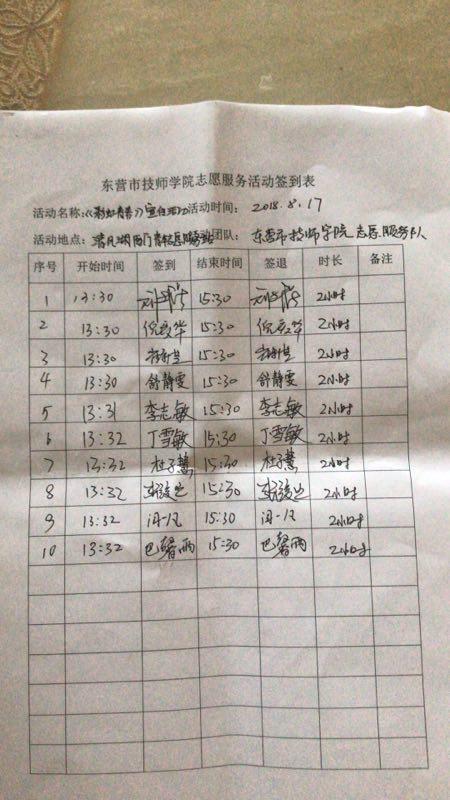 东营市技师学院志愿服务活动签到表
活动名称: 活动时间: 2018.8.17
活动地点: 活动团队: 东营市技师学院志愿服务队
序号 开始时间 签到 结束时间 签退 时长 备注
1 13:30 15:30 2小时
2 13:30 15:30 2小时
3 13:30 15:30 2小时
4 13:30 舒静雯 15:30 舒静雯 2小时
5 13:31 李志敏 15:30 李志敏 2小时
6 13:32 丁雪敏 15:30 丁雪敏 2小时
7 13:32 杜子慧 15:30 杜子慧 2小时
8 13:32 15:30 2小时
9 13:32 15:30 2小时
10 13:32 巴馨雨 15:30 巴馨雨 2小时